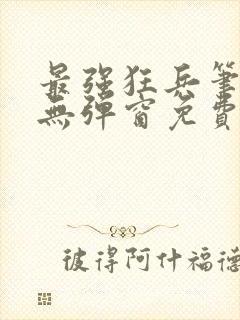 最强狂兵筆
無彈窗免費
彼得阿什福德